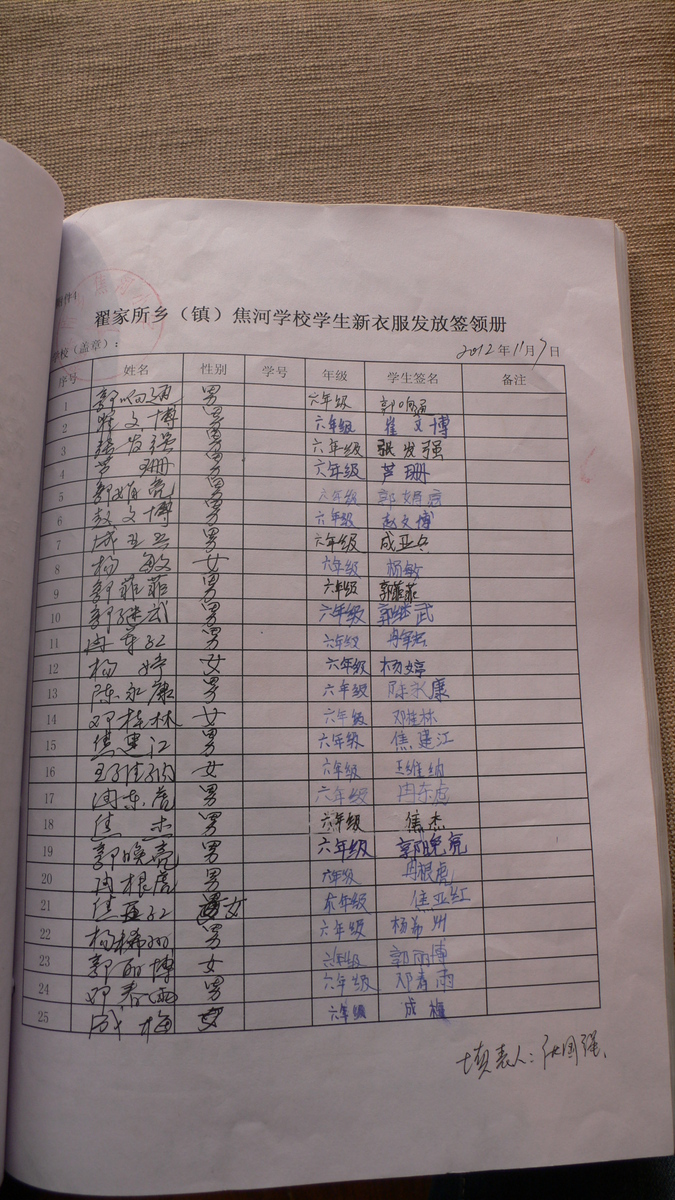 附件
翟家所乡（镇）焦河学校学生新衣服发放签领册
学校（盖章）： 2012年11月7日
序号 姓名 性别 学号 年级 学生签名 备注
1 郭响 男 六年级 郭响
2 崔文博 男 六年级 崔文博
3 张发强 男 六年级 张发强
4 芦珊 男 六年级 芦珊
5 郭娟亮 男 六年级 郭娟亮
6 赵文博 男 六年级 赵文博
7 成亚兵 男 六年级 成亚兵
8 杨敏 女 六年级 杨敏
9 郭菲菲 男 六年级 郭菲菲
10 郭继武 男 六年级 郭继武
11 冉军红 男 六年级 冉军
12 杨婷 女 六年级 杨婷
13 陈永康 男 六年级 陈永康
14 邓桂林 女 六年级 邓桂林
15 焦建江 男 六年级 焦建江
16 王维纳 女 六年级 王维纳
17 冉东虎 男 六年级 冉东虎
18 焦杰 男 六年级 焦杰
19 郭晓亮 男 六年级 郭晓亮
20 冉根虎 男 六年级 冉根虎
21 焦亚红 女 六年级 焦亚红
22 杨稀州 男 六年级 杨希州
23 郭丽博 女 六年级 郭丽博
24 邓春雨 男 六年级 邓春雨
25 成梅 女 六年级 成梅
填表人：张国强